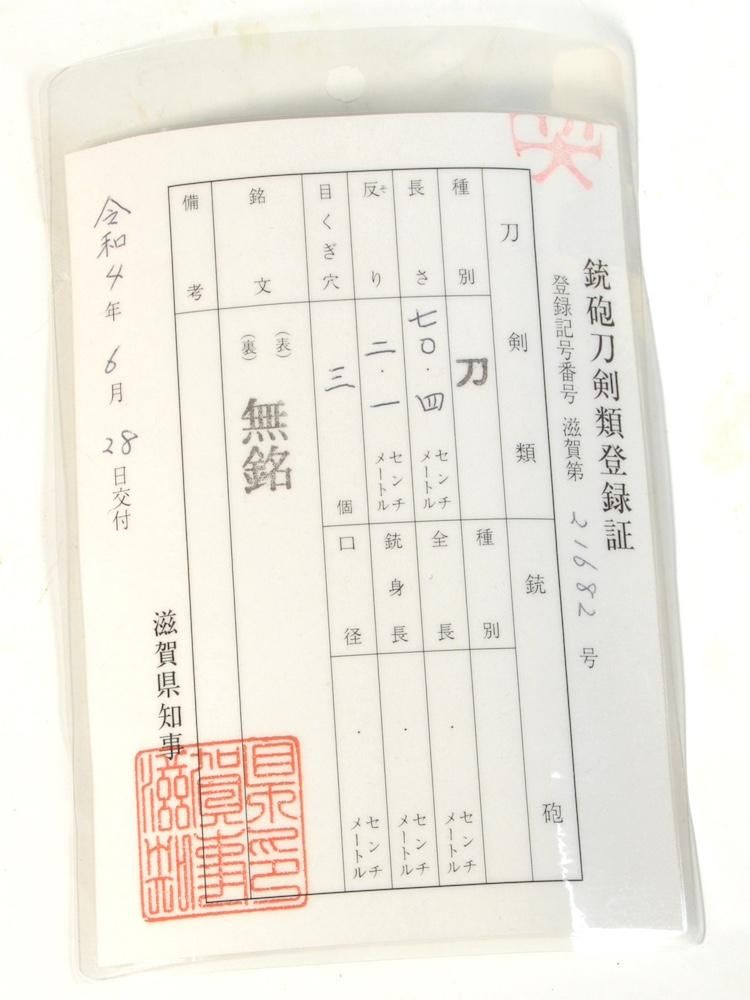 銃砲刀剣類登録証
登録記号番号 滋賀第 21682 号
刀剣類
種別 刀
長さ 七〇・四 センチメートル
反り そ 二・一 センチメートル
目くぎ穴 三 個
銘文 (表) (裏) 無銘
備考
銃砲
種別
全長 ・ センチメートル
銃身長 ・ センチメートル
口径 ・ センチメートル
令和4年6月28日交付
滋賀県知事